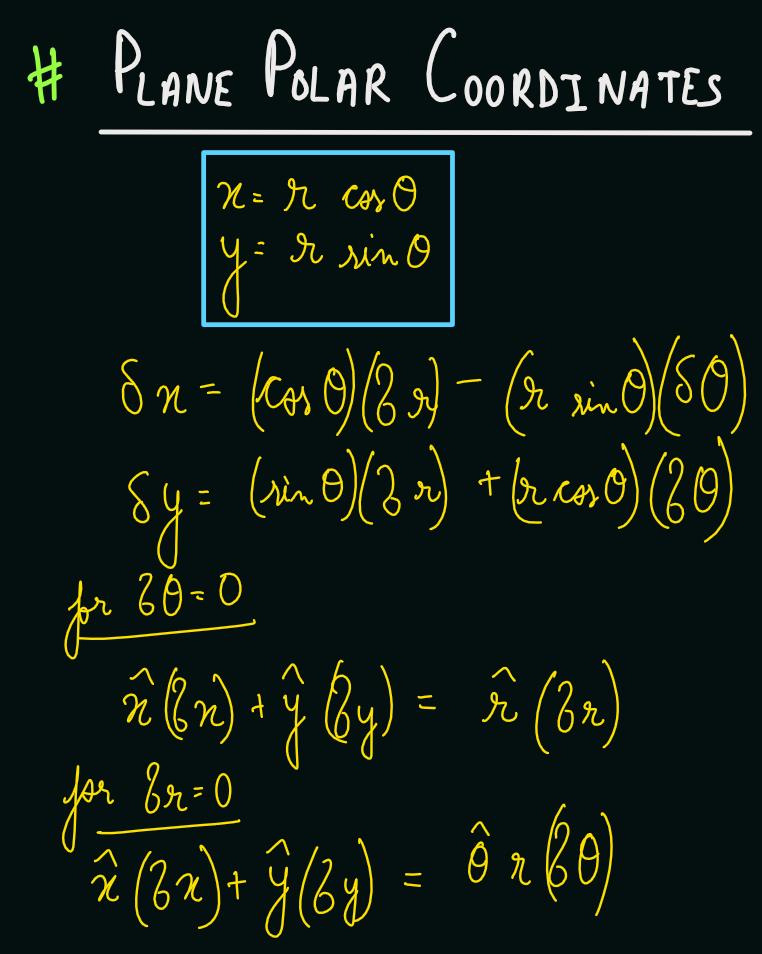 # PLANE POLAR COORDINATES
x = r cos θ
y = r sin θ
δx = (cos θ)(δr) − (r sin θ)(δθ)
δy = (sin θ)(δr) + (r cos θ)(δθ)
for δθ = 0
x̂(δx) + ŷ(δy) = r̂(δr)
for δr = 0
x̂(δx) + ŷ(δy) = θ̂ r(δθ)